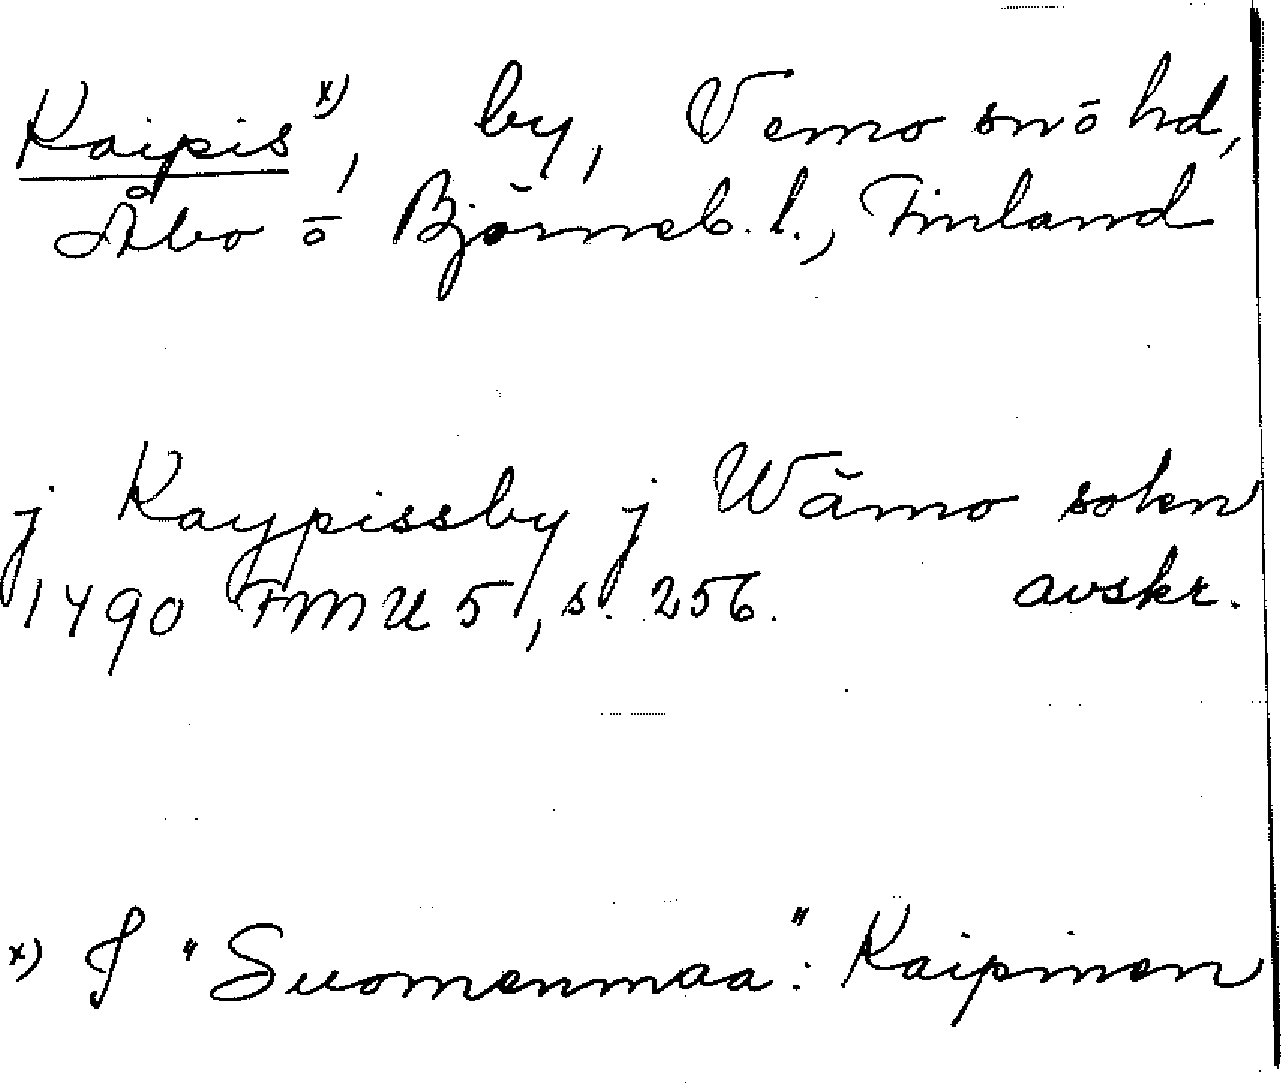 Kaipis x), by, Vemo sn ō hd,
Åbo ō Björneb. l., Finland
j Kaypissby j Wämo sokn
1490 FMU 5, s. 256. avskr.
x) I "Suomenmaa": Kaipinen